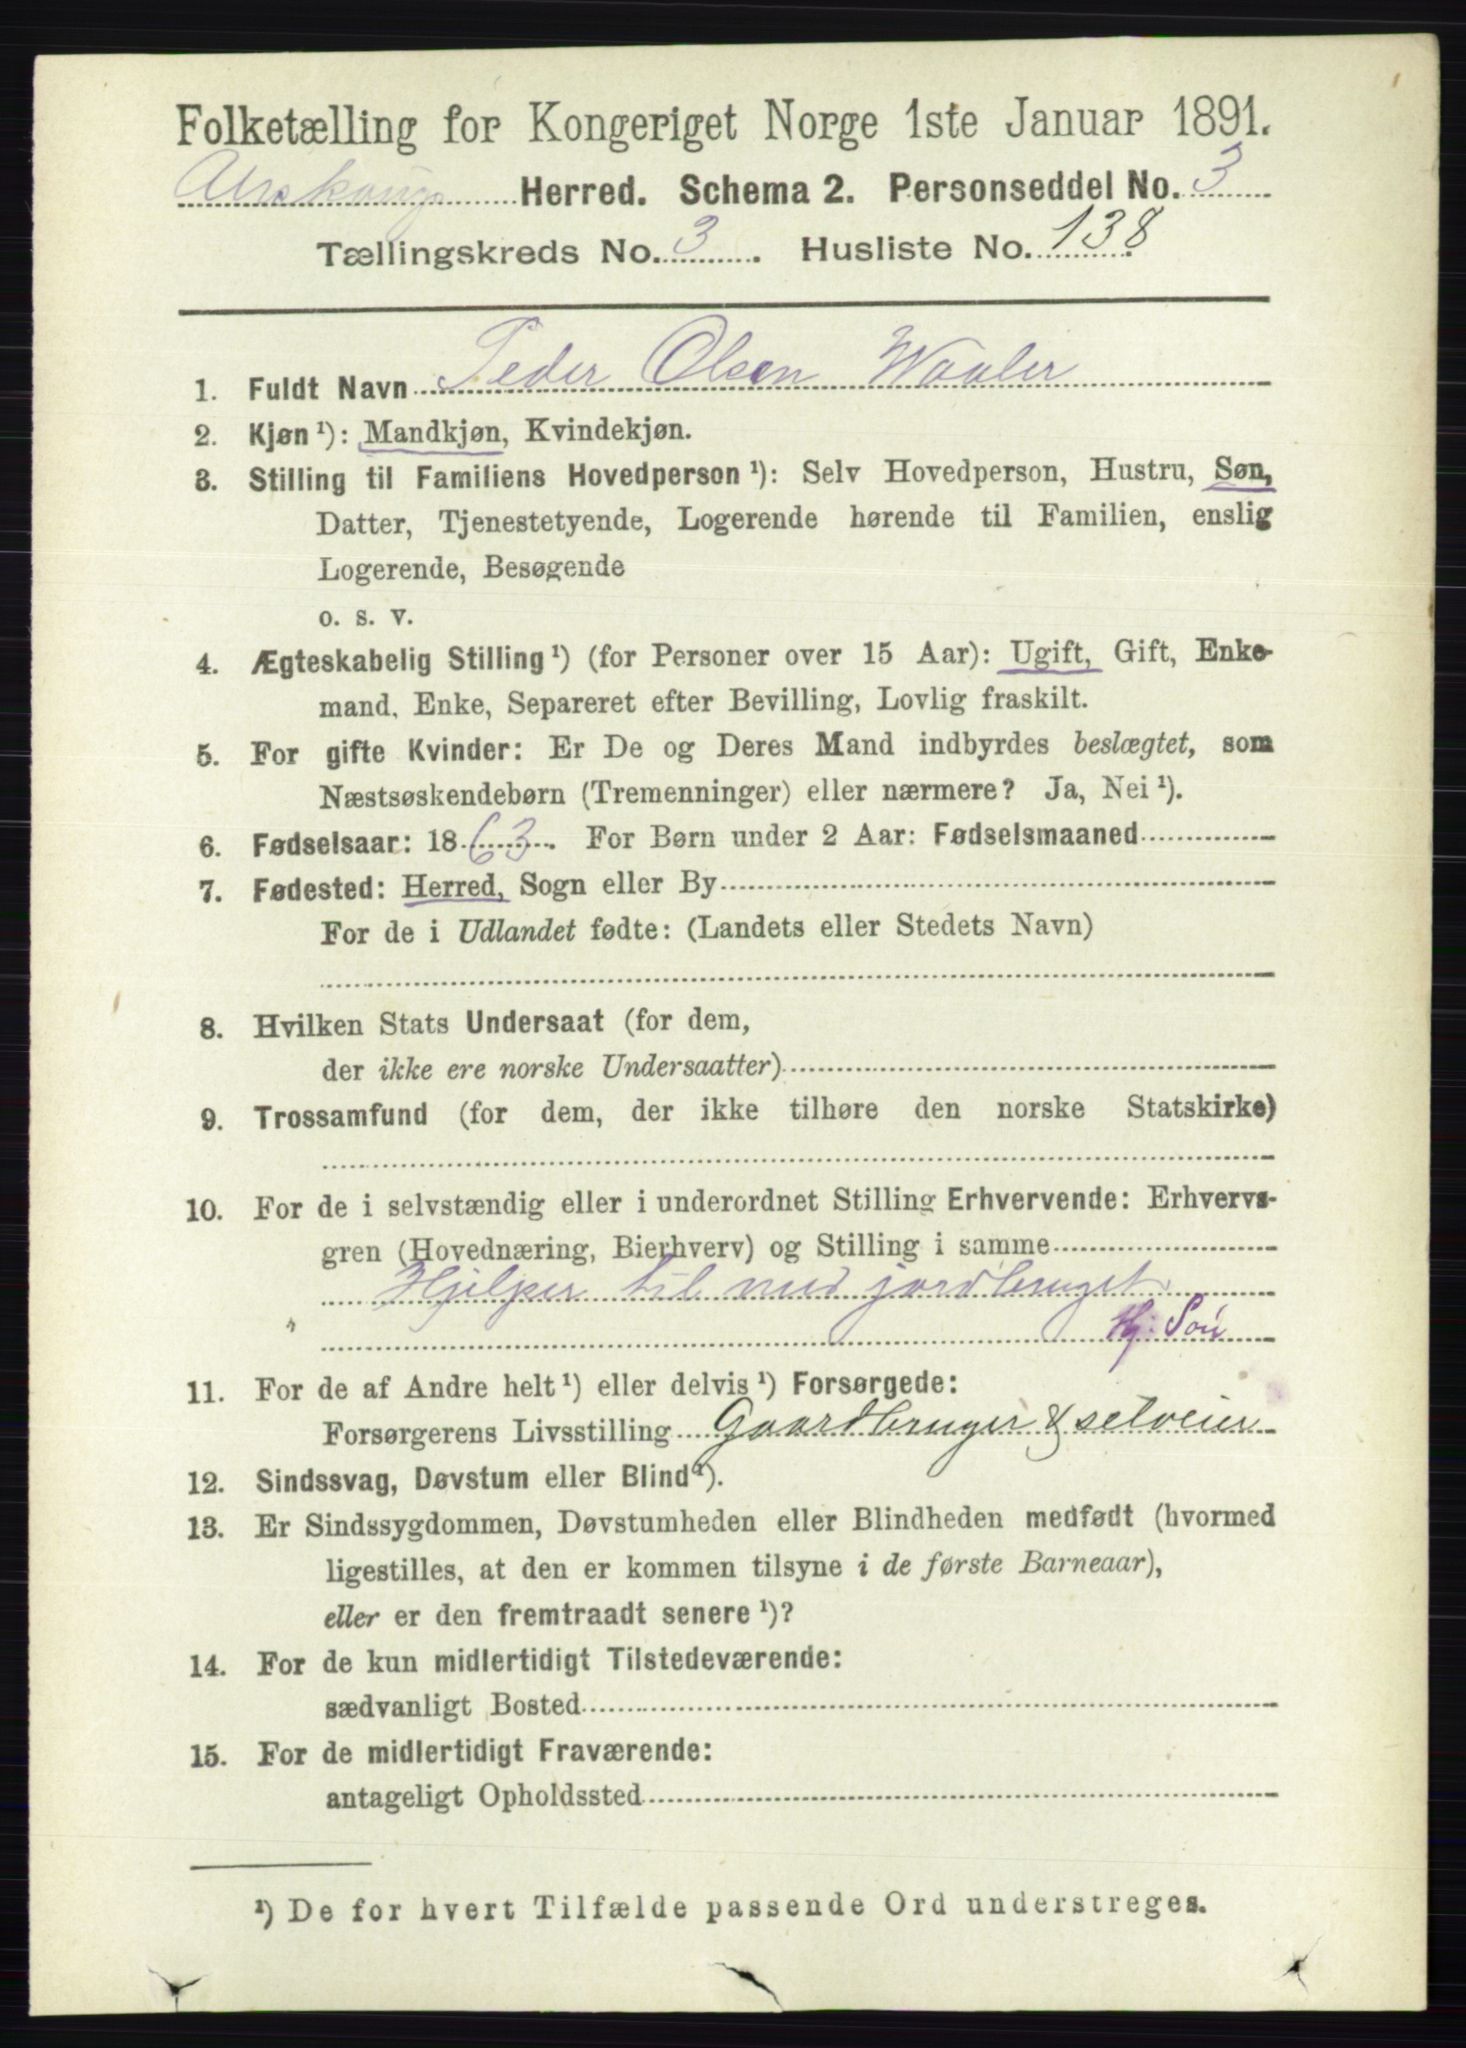 Folketælling for Kongeriget Norge 1ste Januar 1891.
Herred. Schema 2. Personseddel No. 3
Tællingskreds No. 3. Husliste No. 138
1. Fuldt Navn Peder Olsen Waaler
2. Kjøn ¹): Mandkjøn, Kvindekjøn.
3. Stilling til Familiens Hovedperson ¹): Selv Hovedperson, Hustru, Søn,
Datter, Tjenestetyende, Logerende hørende til Familien, enslig
Logerende, Besøgende
o. s. v.
4. Ægteskabelig Stilling ¹) (for Personer over 15 Aar): Ugift, Gift, Enke-
mand, Enke, Separeret efter Bevilling, Lovlig fraskilt.
5. For gifte Kvinder: Er De og Deres Mand indbyrdes beslægtet, som
Næstsøskendebørn (Tremenninger) eller nærmere? Ja, Nei ¹).
6. Fødselsaar: 1863. For Børn under 2 Aar: Fødselsmaaned
7. Fødested: Herred, Sogn eller By
For de i Udlandet fødte: (Landets eller Stedets Navn)
8. Hvilken Stats Undersaat (for dem,
der ikke ere norske Undersaatter)
9. Trossamfund (for dem, der ikke tilhøre den norske Statskirke)
10. For de i selvstændig eller i underordnet Stilling Erhvervende: Erhvervs-
gren (Hovednæring, Bierhverv) og Stilling i samme
Hjelper til med jordbruget
Hj. Søn
11. For de af Andre helt ¹) eller delvis ¹) Forsørgede:
Forsørgerens Livsstilling Gaardbruger & selveier
12. Sindssvag, Døvstum eller Blind ¹).
13. Er Sindssygdommen, Døvstumheden eller Blindheden medfødt (hvormed
ligestilles, at den er kommen tilsyne i de første Barneaar),
eller er den fremtraadt senere ¹)?
14. For de kun midlertidigt Tilstedeværende:
sædvanligt Bosted
15. For de midlertidigt Fraværende:
antageligt Opholdssted
¹) De for hvert Tilfælde passende Ord understreges.